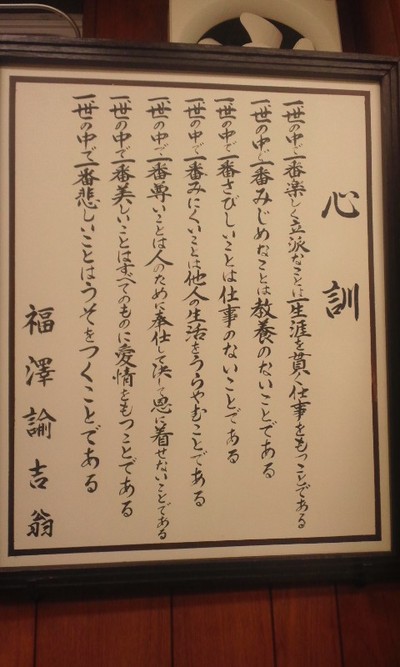 心訓
一世の中で一番楽しく立派なことは一生涯を貫く仕事をもつことである
一世の中で一番みじめなことは教養のないことである
一世の中で一番さびしいことは仕事のないことである
一世の中で一番みにくいことは他人の生活をうらやむことである
一世の中で一番尊いことは人のために奉仕して決して恩に着せないことである
一世の中で一番美しいことはすべてのものに愛情をもつことである
一世の中で一番悲しいことはうそをつくことである
福澤諭吉翁